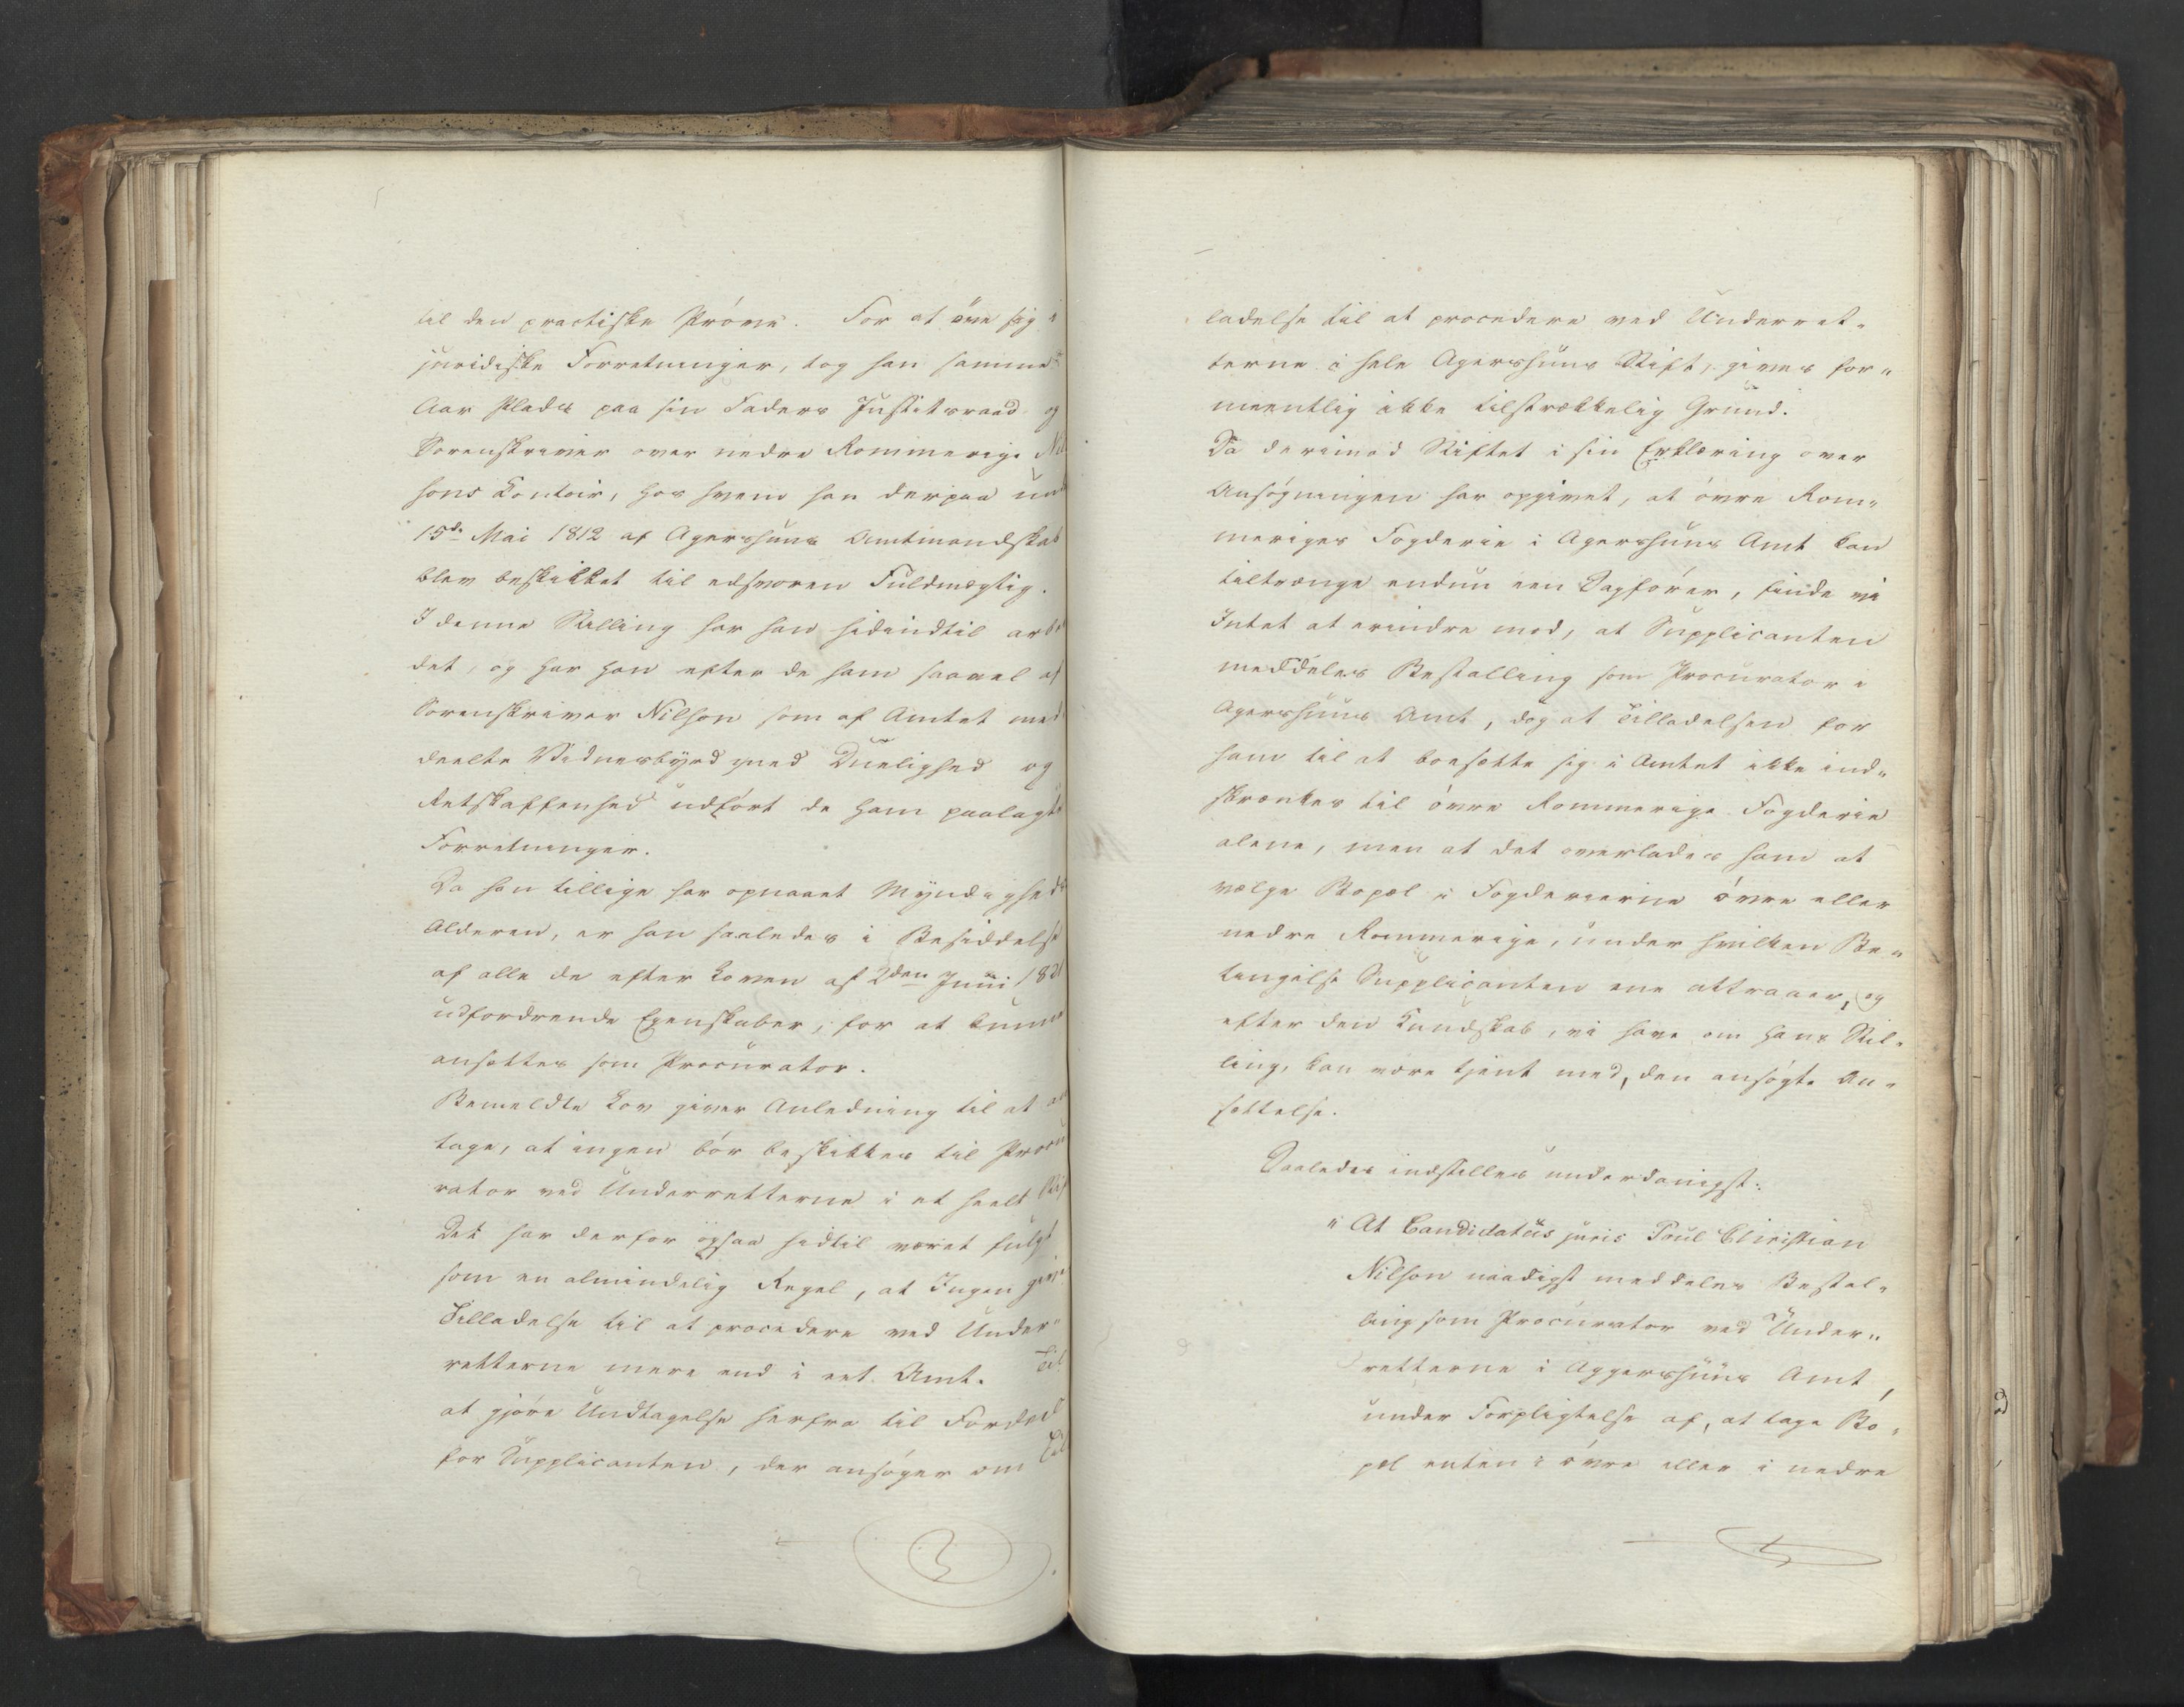 til den practiske Prøve. For at øve sig i
juridiske Forretninger, tog han samme
Aar Plads paa sin Faders Justitsraad og
Sorenskriver over nedre Rommerige Nil
sons Contoir, hos hvem han derpaa un
15de Mai 1812 af Agershuus Amtmandskab
blev beskikket til edsvoren Fuldmægtig.
I denne Stilling har han hidindtil arbei
det, og har han efter de ham saavel af
Sorenskriver Nilson som af Amtet med
deelte Vidnesbyrd med Duelighed og
Retskaffenhed udført de ham paalagte
Forretninger.
Da han tillige har opnaaet Myndigheds
Alderen, er han saaledes i Besiddelse
af alle de efter Loven af 2den Juni 1821
udfordrende Egenskaber, for at kunne
ansættes som Procurator.
Bemeldte Lov giver Anledning til at an
tage, at ingen bør beskikkes til Procu
rator ved Underretterne i et heelt Stif
Det har derfor ogsaa hidtil været fulgt
som en almindelig Regel, at Ingen gives
Tilladelse til at procedere ved Under"
retterne mere end i eet Amt. Til
at gjøre Undtagelse herfra til Fordeel
for Supplicanten, der ansøger om Til
ladelse til at procedere ved Underret-
terne i hele Agershuus Stift, gives for"
meentlig ikke tilstrækkelig Grund.
Da derimod Stiftet i sin Erklæring over
Ansøgningen har opgivet, at øvre Rom"
meriges Fogderie i Agershuus Amt kan
tiltrænge endnu een Sagfører, finde vi
Intet at erindre mod, at Supplicanten
meddeles Bestalling som Procurator i
Agershuus Amt, dog at Tilladelsen for
ham til at boesætte sig i Amtet ikke ind"
skrænkes til øvre Rommerige Fogderie
alene, men at det overlades ham at
vælge Bopæl i Fogderierne øvre eller
nedre Rommerige, under hvilken Be"
tingelse Supplicanten ene attraaer, og
efter den Kundskab, vi have om hans Stil-
ling, kan være tjent med, den ansøgte An-
sættelse.
Saaledes indstilles underdanigst:
" At Candidatus juris Poul Christian
Nilson naadigst meddeles Bestal-
ling som Procurator ved Under"
retterne i Aggershuus Amt,
under Forpligtelse af, at tage Bo-
pæl enten i øvre eller i nedre